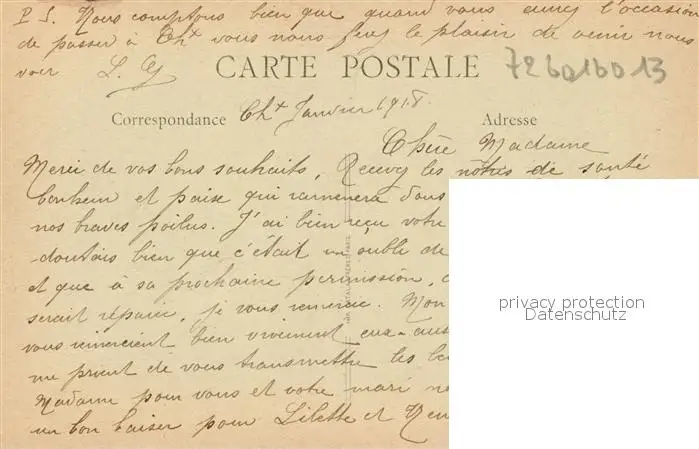 P S. Nous comptons bien que quand vous aurez l'occasion
de passer à Cht vous nous ferez le plaisir de venir nous
voir L. G
CARTE POSTALE
7260160 13
Correspondance
Adresse
Cht Janvier 1918.
Chère Madame
Merci de vos bons souhaits, Recevez les nôtres de santé
bonheur et paix qui ramènera dans
nos braves poilus. J'ai bien reçu votre
doutais bien que c'était un oubli de
et que à sa prochaine permission,
serait réparé, je vous remercie. Mon
vous remercient bien vivement eux-aus
me prient de vous transmettre les
Madame pour vous et votre mari
un bon baiser pour Lilette et
privacy protection
Datenschutz